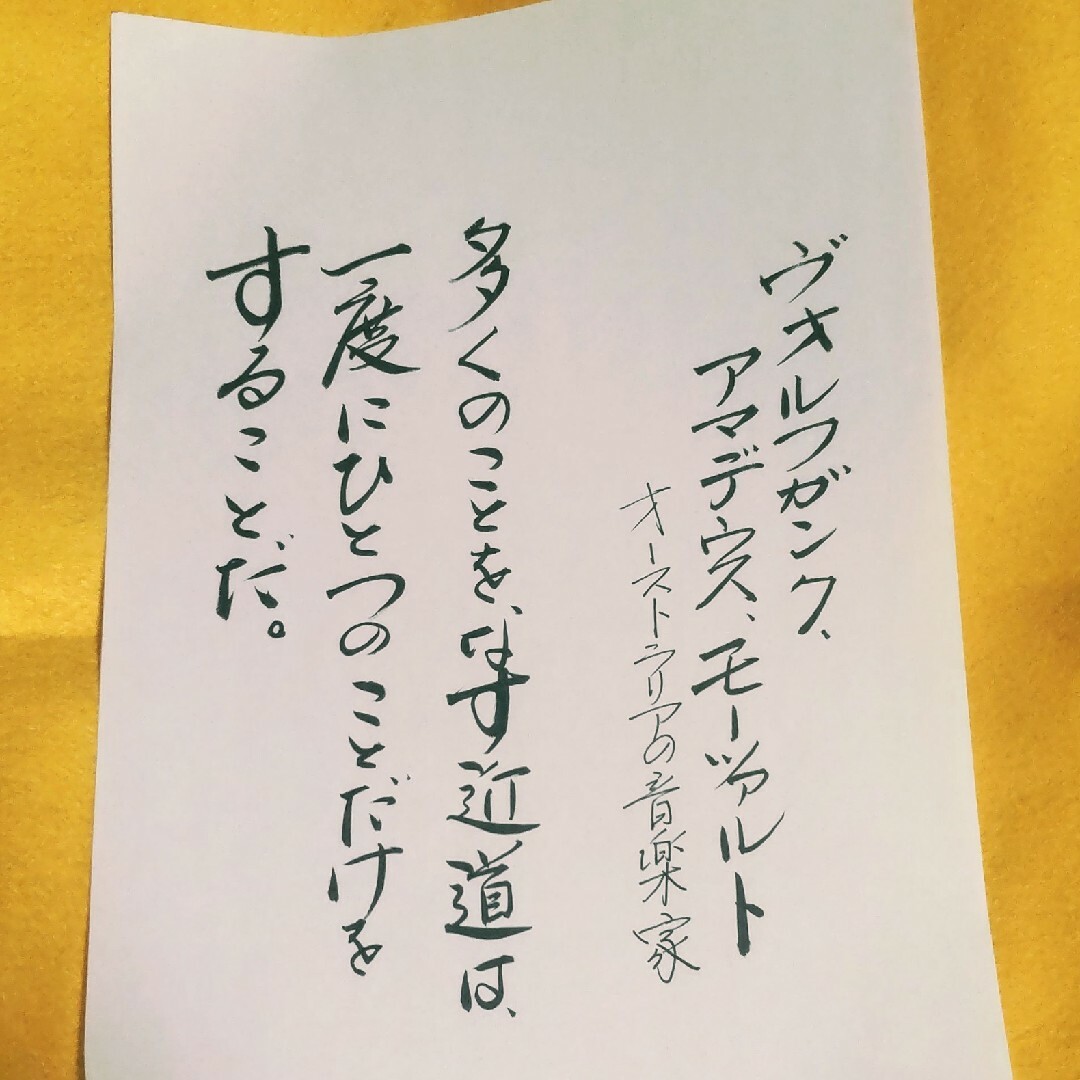 ヴオルフガンク、
アマデウス、モーツァルト
オーストラリアの音楽家
多くのことを、なす近道は、
一度にひとつのことだけを
することだ。